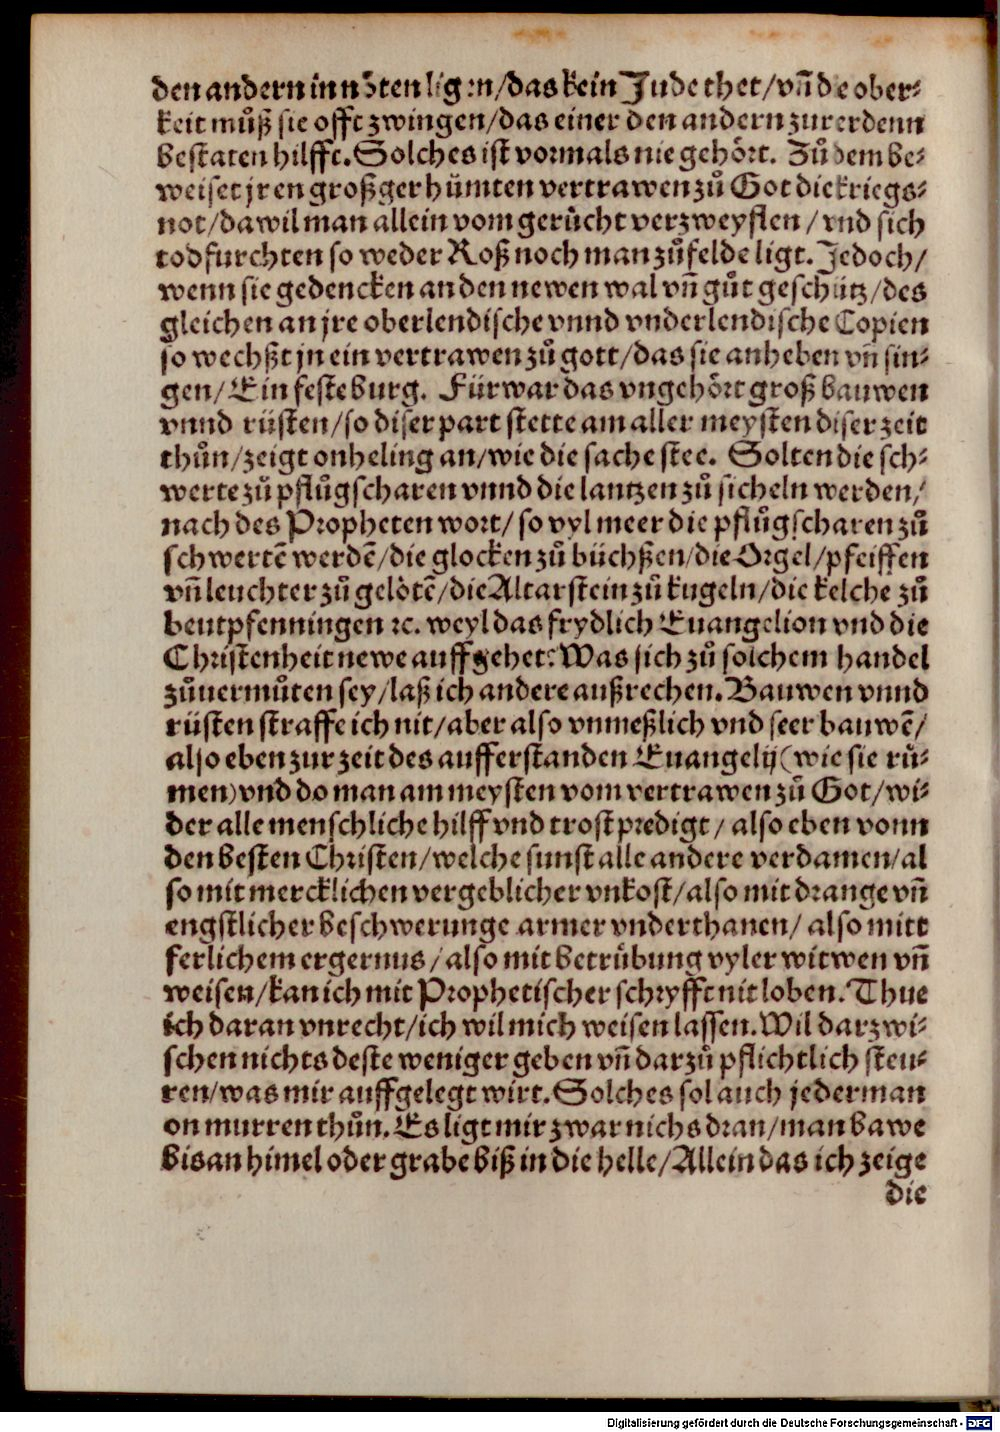 den andern in nöten ligen/das kein Jude thet/vñ die ober-
keit můß sie offt zwingen/das einer den andern zur erdenn
bestaten hilfft. Solches ist vormals nie gehört. Zů dem be-
weiset jren groß gerhümten vertrawen zů Got die kriegs-
not/da wil man allein vom gerücht verzweyflen/vnd sich
tod furchten so weder Roß noch man zů felde ligt. Jedoch/
wenn sie gedencken an den newen wal vñ gůt geschütz/des
gleichen an jre oberlendische vnnd vnderlendische Copien
so wechßt jn ein vertrawen zů gott/das sie anheben vñ sin-
gen/Ein feste burg. Fürwar das vngehört groß bauwen
vnnd rüsten/so diser part stette am aller meysten diser zeit
thůn/zeigt onheling an/wie die sache stee. Solten die sch-
werte zů pflůgscharen vnnd die lantzen zů sicheln werden/
nach des Propheten wort/so vyl meer die pflůgscharen zů
schwertē werdē/die glocken zů büchßen/die Orgel/pfeiffen
vñ leuchter zů gelötē/die Altarstein zů kugeln/die kelche zů
beutpfenningen ꝛc. weyl das frydlich Euangelion vnd die
Christenheit newe auffgehet: Was sich zů solchem handel
zůuermůten sey/laß ich andere außrechen. Bauwen vnnd
rüsten straffe ich nit/aber also vnmeßlich vnd seer bauwē/
also eben zur zeit des aufferstanden Euangelij (wie sie rů-
men) vnd do man am meysten vom vertrawen zů Got/wi-
der alle menschliche hilff vnd trost predigt/also eben vonn
den besten Christen/welche sunst alle andere verdamen/al
so mit mercklichen vergeblicher vnkost/also mit drange vñ
engstlicher beschwerunge armer vnderthanen/also mitt
ferlichem ergernus/also mit betrübung vyler witwen vñ
weisen/kan ich mit Prophetischer schryfft nit loben. Thue
ich daran vnrecht/ich wil mich weisen lassen. Wil darzwi-
schen nichts deste weniger geben vñ darzů pflichtlich steu-
ren/was mir auffgelegt wirt. Solches sol auch jederman
on murren thůn. Es ligt mir zwar nichs dran/man bawe
bis an himel oder grabe biß in die helle/Allein das ich zeige
die
Digitalisierung gefördert durch die Deutsche Forschungsgemeinschaft - DFG